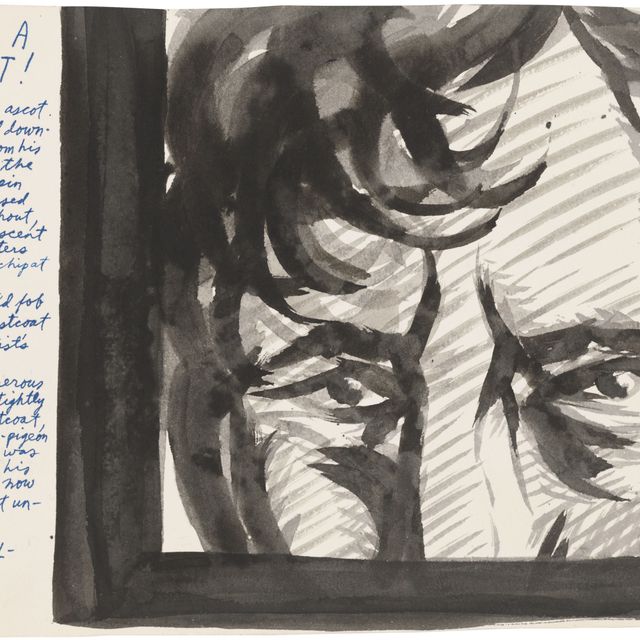 A
T!
ascot.
down-
om his
the
sin
sed
hout,
scent
ters
chip at
d fob
stcoat
ist's
erous
tightly
tcoat,
-pigeon
was
his
now
t un-